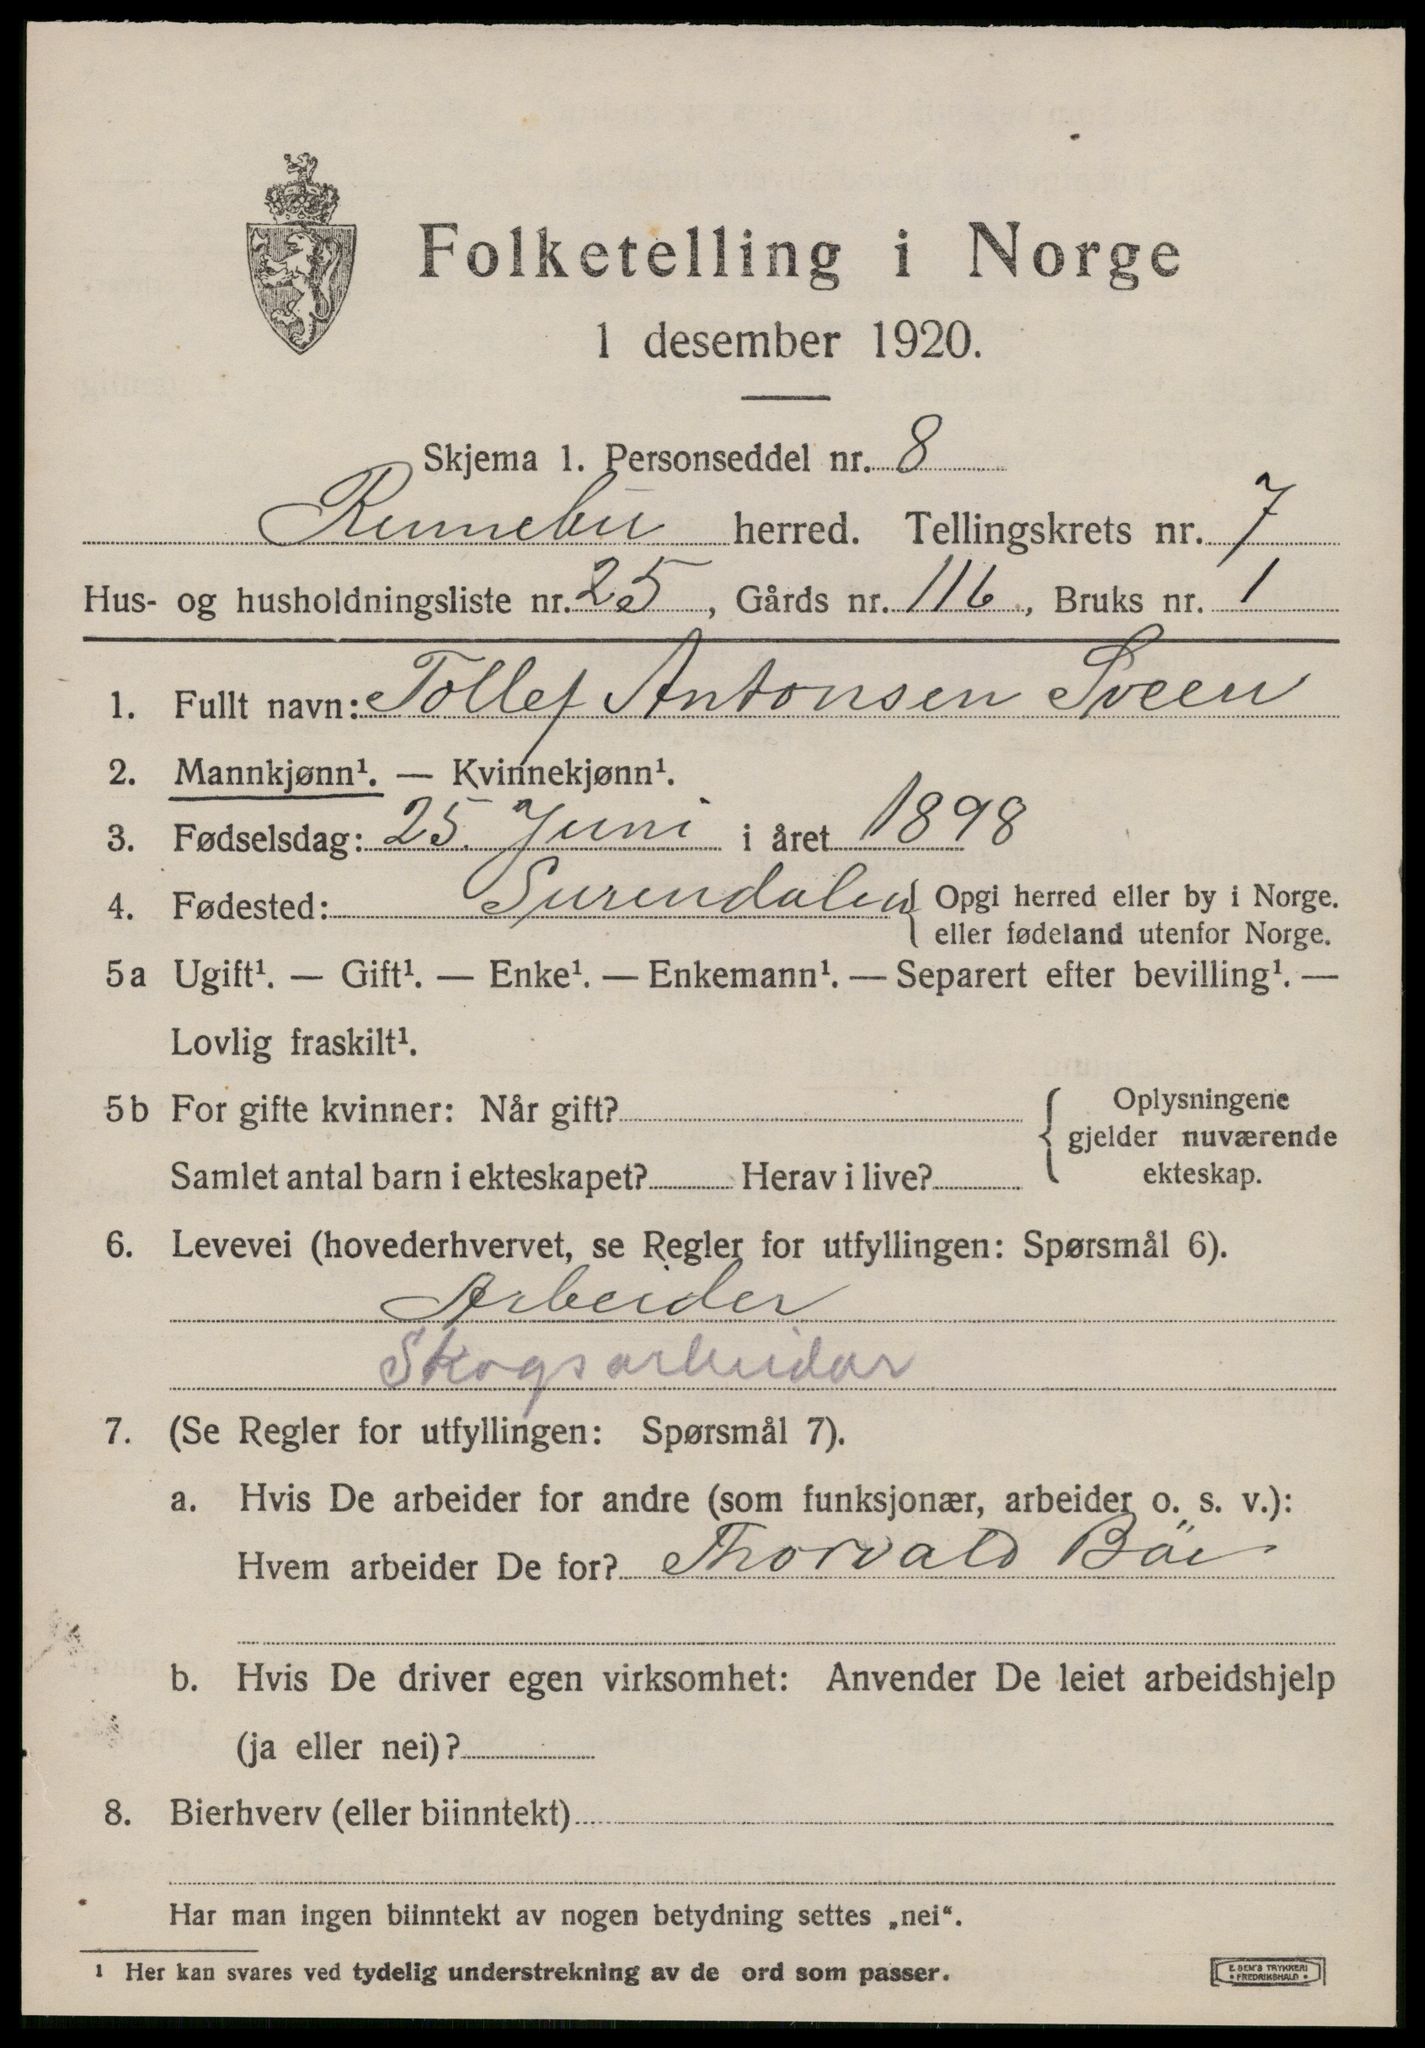 Folketelling i Norge
1 desember 1920.
Skjema 1. Personseddel nr. 8
Rennebu herred. Tellingskrets nr. 7
Hus- og husholdningsliste nr. 25, Gårds nr. 116, Bruks nr. 1
1. Fullt navn: Tollef Antonsen Sveen
2. Mannkjønn¹. — Kvinnekjønn¹.
3. Fødselsdag: 25. Juni i året 1898
4. Fødested: Surendalen { Opgi herred eller by i Norge.
eller fødeland utenfor Norge.
5a Ugift¹. — Gift¹. — Enke¹. — Enkemann¹. — Separert efter bevilling¹. —
Lovlig fraskilt¹.
5b For gifte kvinner: Når gift? { Oplysningene
gjelder nuværende
ekteskap.
Samlet antal barn i ekteskapet? Herav i live?
6. Levevei (hovederhvervet, se Regler for utfyllingen: Spørsmål 6).
Arbeider
Skogsarbeidar
7. (Se Regler for utfyllingen: Spørsmål 7).
a. Hvis De arbeider for andre (som funksjonær, arbeider o. s. v.):
Hvem arbeider De for? Thorvald Böe
b. Hvis De driver egen virksomhet: Anvender De leiet arbeidshjelp
(ja eller nei)?
8. Bierhverv (eller biinntekt)
Har man ingen biinntekt av nogen betydning settes „nei“.
¹ Her kan svares ved tydelig understrekning av de ord som passer.
E. SEM'S TRYKKERI
• FREDRIKSHALD •